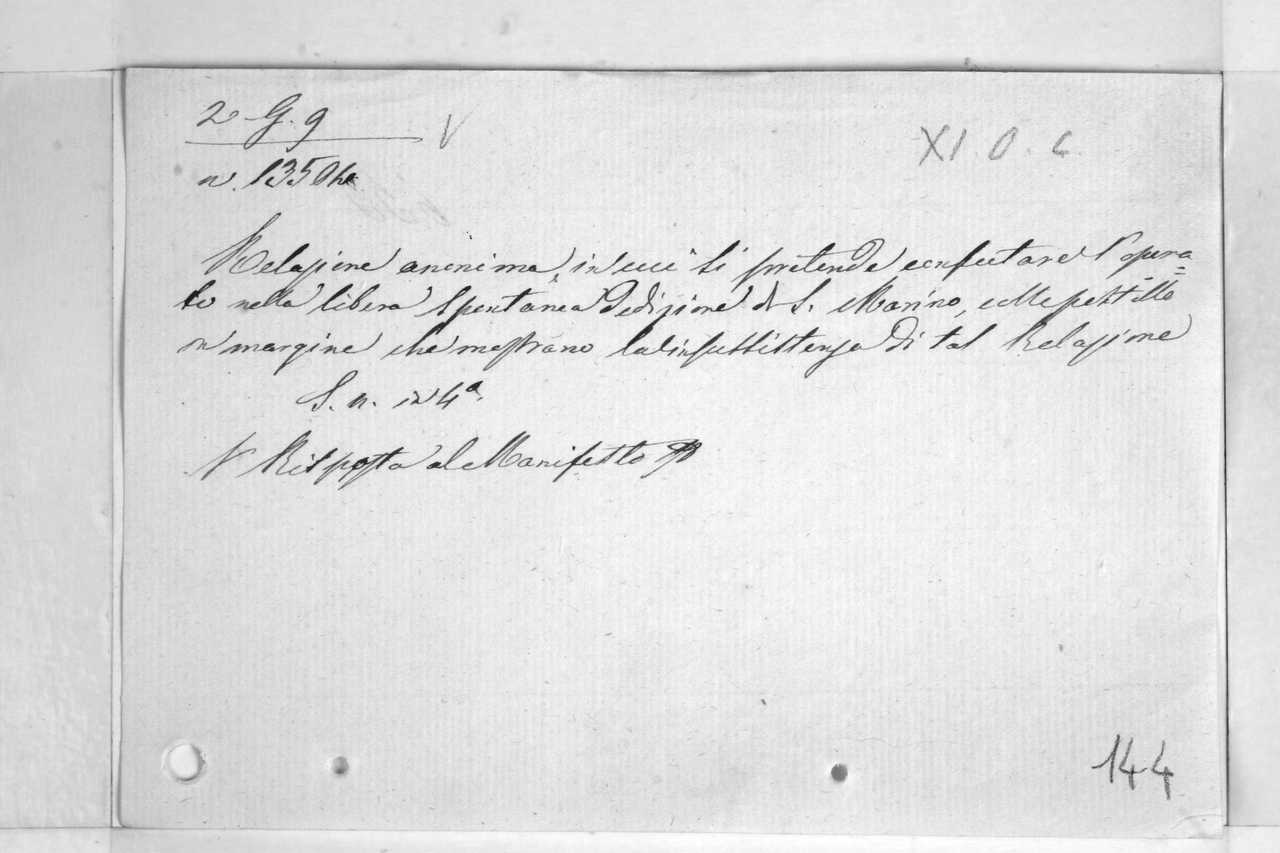 2 G. 9 V
XI. O. 6
n. 1350
Relazione anonima, in cui si pretende confutare l'opera=
to nella libera Spontanea Dedizione di S. Marino, colle postille
in margine che mostrano la linsussistenza di tal Relazione
S. n. in 4º.
V Risposta al Manifesto
144